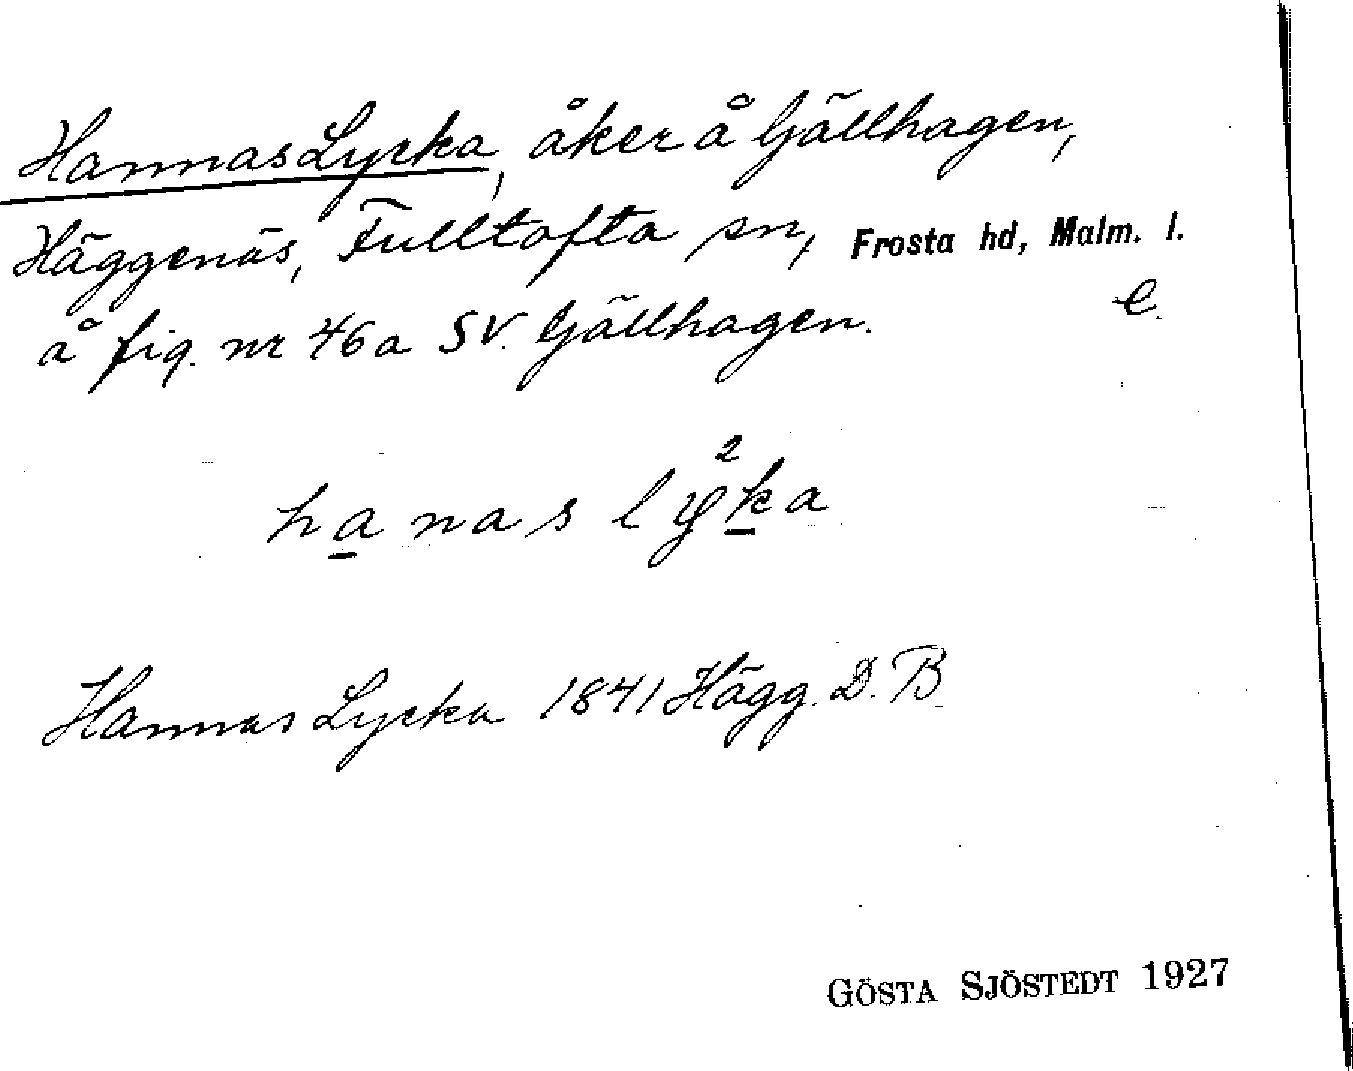 Hannas Lycka, åker å Gällhagen,
Häggenäs, Fulltofta sn, Frosta hd, Malm. l.
å fig. nr 46a SV. Gällhagen. C.
hanas ly²ka
Hannas Lycka 1841 Hägg. D. B
GÖSTA SJÖSTEDT 1927